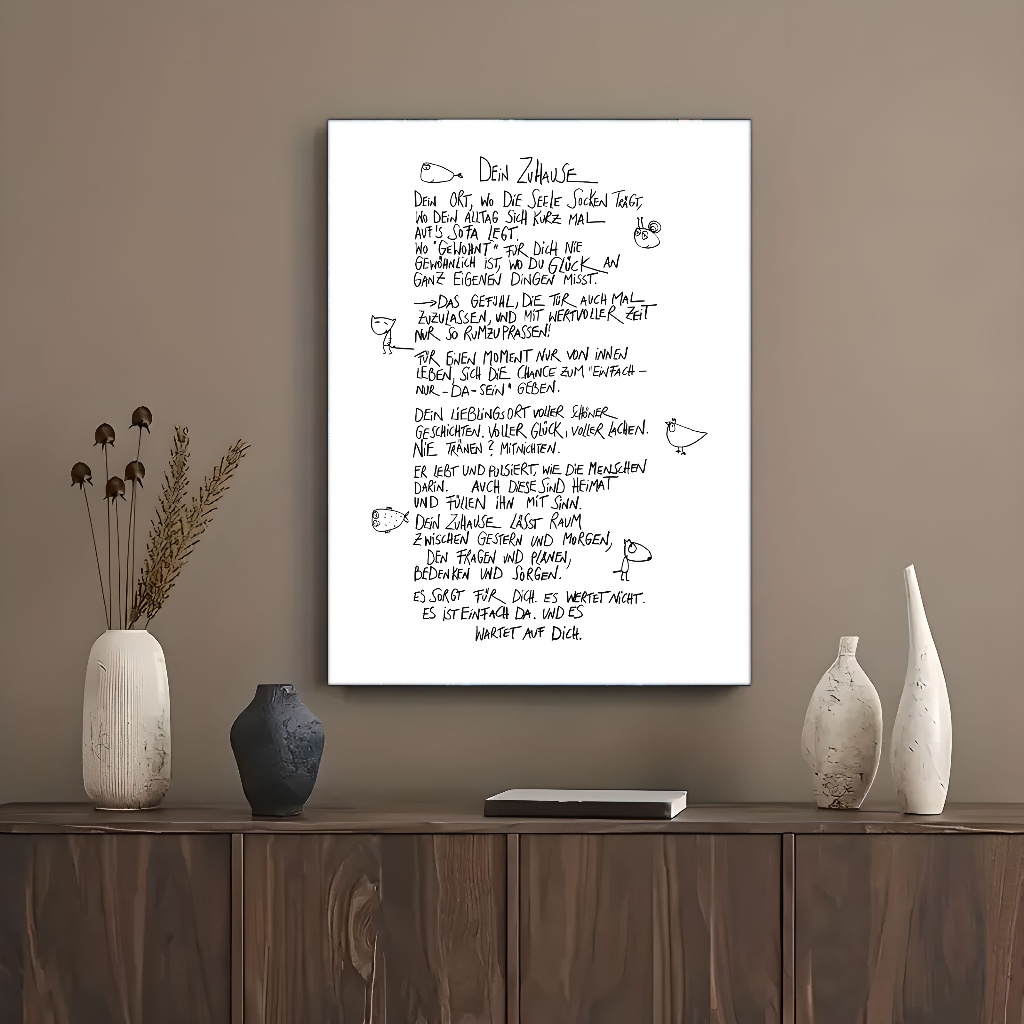 DEIN ZUHAUSE
DEIN ORT, WO DIE SEELE SOCKEN TRÄGT,
WO DEIN ALLTAG SICH KURZ MAL
AUF'S SOFA LEGT.
WO "GEWOHNT" FÜR DICH NIE
GEWÖHNLICH IST, WO DU GLÜCK AN
GANZ EIGENEN DINGEN MISST.
→DAS GEFÜHL, DIE TÜR AUCH MAL
ZUZULASSEN, UND MIT WERTVOLLER ZEIT
NUR SO RUMZUPRASSEN!
FÜR EINEN MOMENT NUR VON INNEN
LEBEN, SICH DIE CHANCE ZUM "EINFACH-
NUR-DA-SEIN" GEBEN.
DEIN LIEBLINGSORT VOLLER SCHÖNER
GESCHICHTEN. VOLLER GLÜCK, VOLLER LACHEN.
NIE TRÄNEN? MITNICHTEN.
ER LEBT UND PULSIERT, WIE DIE MENSCHEN
DARIN. AUCH DIESE SIND HEIMAT
UND FÜLLEN IHN MIT SINN.
DEIN ZUHAUSE LÄSST RAUM
ZWISCHEN GESTERN UND MORGEN,
DEN FRAGEN UND PLÄNEN,
BEDENKEN UND SORGEN.
ES SORGT FÜR DICH. ES WERTET NICHT.
ES IST EINFACH DA. UND ES
WARTET AUF DICH.